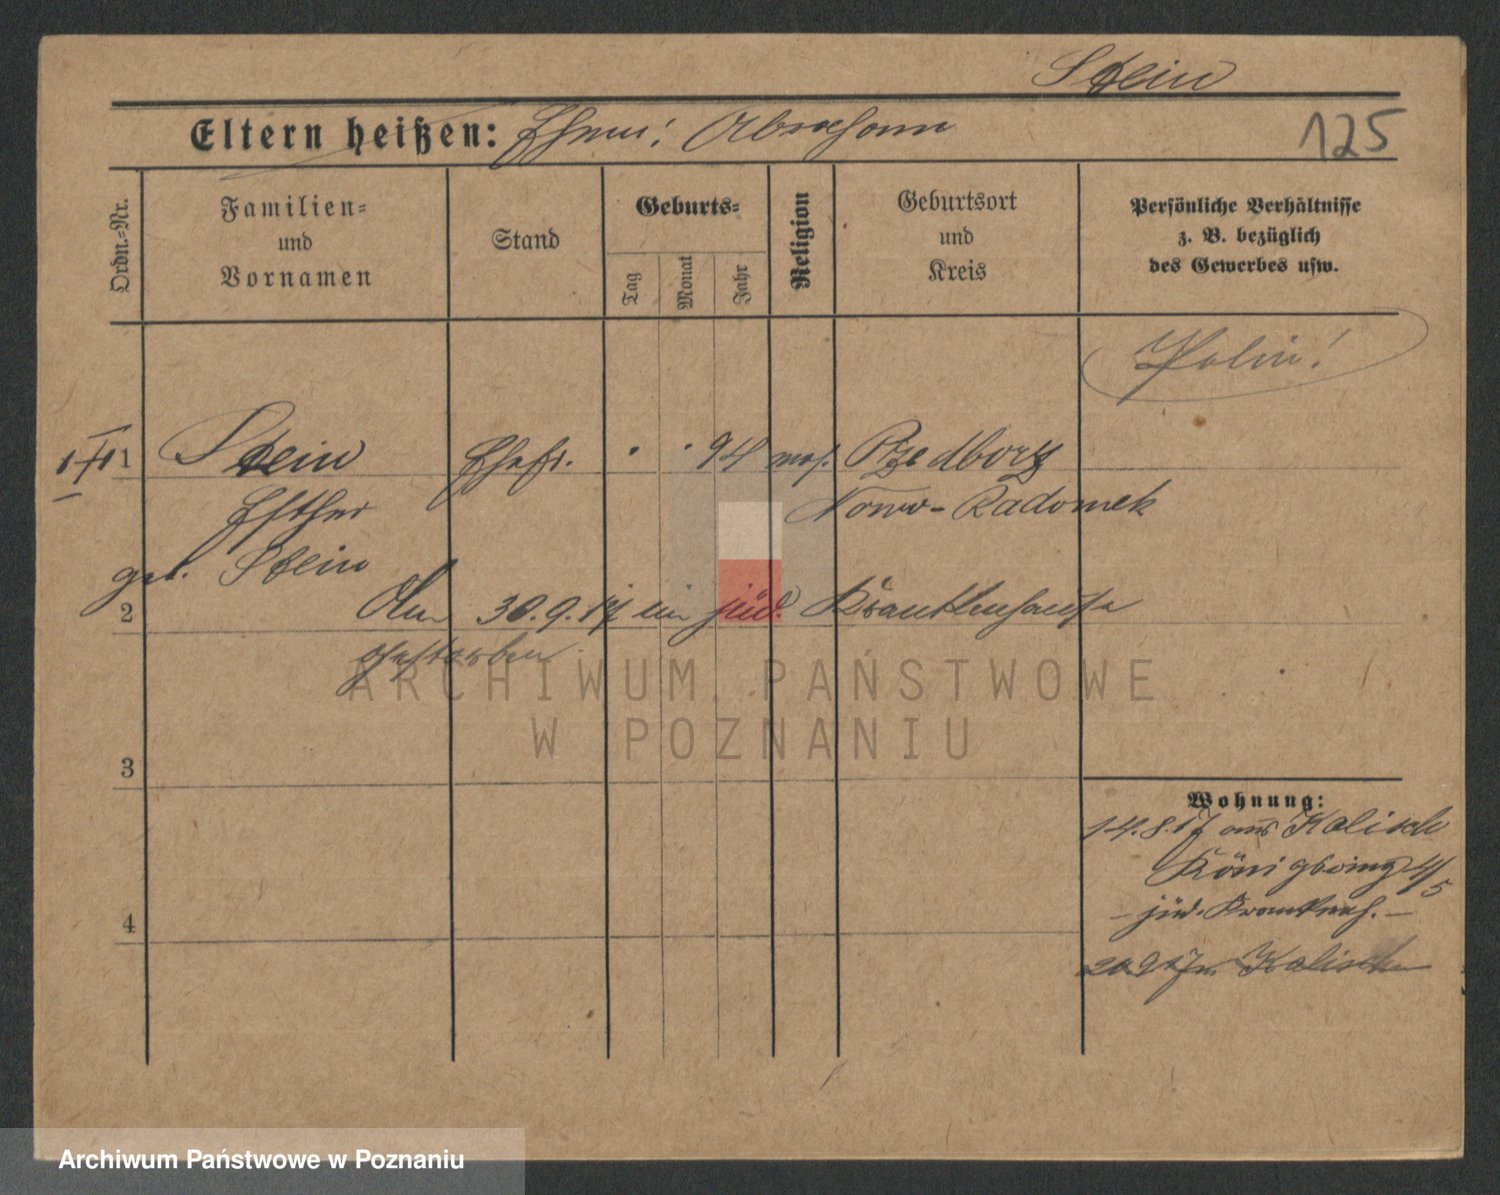 Stein
Eltern heißen: Ehem: Abraham
125
Ordn.-Nr.
Familien-
und
Vornamen
Stand
Geburts-
Tag
Monat
Jahr
Religion
Geburtsort
und
Kreis
Persönliche Verhältnisse
z. B. bezüglich
des Gewerbes usw.
Polin!
1 Stein Ehefr. 94 mos. Pzedborz
Esther Nowo-Radomsk
geb. Stein
2 Am 30.9.17 im jüd. Krankenhause
gestorben
3
4
Wohnung:
14.8.17 aus Kalisch
Königsring 4/5
- jüd. Krankenh. -
Kalisch
ARCHIWUM PAŃSTWOWE
W POZNANIU
Archiwum Państwowe w Poznaniu